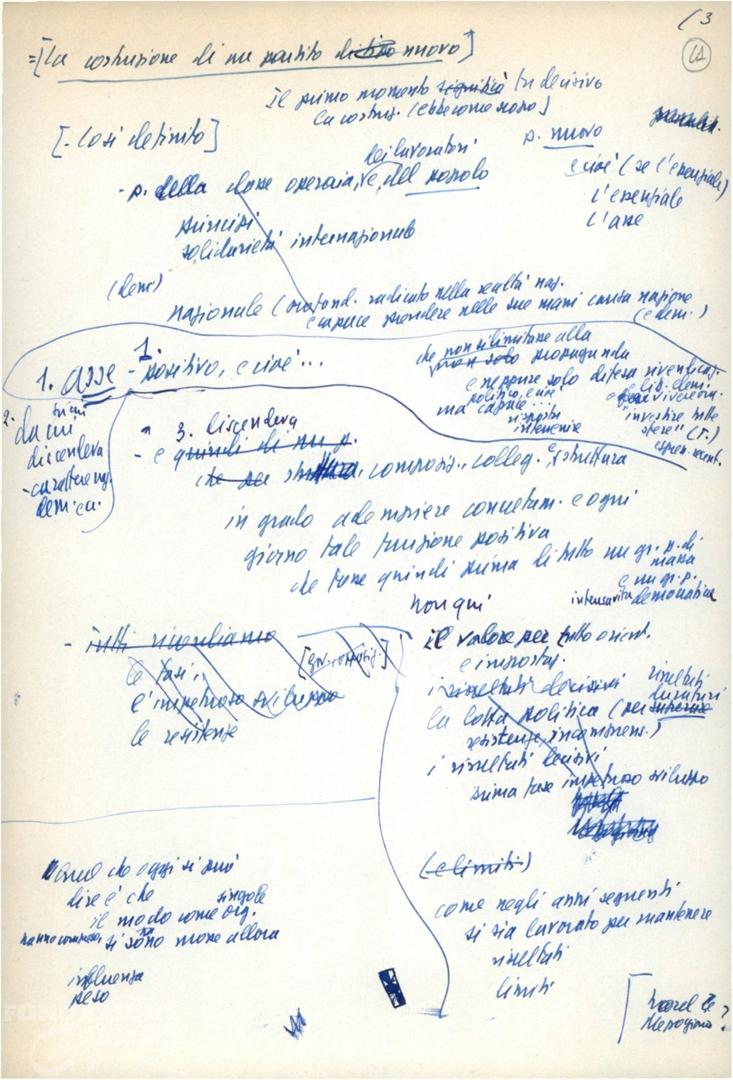 (3
=[La costruzione di un partito di tipo nuovo]
Il primo momento decisivo
La costruz. (ebbe come sono)
[- Così definito]
p. nuovo
dei lavoratori
- p. della classe operaia, e del popolo
e cioè (se l'essenziale)
l'essenziale
l'asse
principi
solidarietà internazionale
(dem)
nazionale (profond. radicato nella realtà naz.
e capace prendere nelle sue mani causa nazione
(e dem.)
1. asse - 1. positivo, e cioè...
che non si limitasse alla
non solo propaganda
e neppure solo difesa rivendicaz.
politico, e cioè
e lib. dem.
ma capace...
risposta
intervenire
"investire tutte
sfere" (T.)
2.
da cui
discendeva
- carattere naz.
dem. ecc.
3. discendeva
- e quindi di un p.
che per struttura, composiz., colleg. e struttura
in grado adempiere concretam. e ogni
giorno tale funzione positiva
che fosse quindi prima di tutto un gr. p. di
massa
e un gr. p.
intensa vita democratica
non qui
- tutti ricordiamo
[gov. - opposiz.]
le fasi,
l'impetuoso sviluppo
le resistenze
il valore per tutto orient.
e impostaz.
i risultati decisivi
risultati
duraturi
la lotta politica (per superare
resistenze, incomprens.)
i risultati decisivi
prima fase impetuoso sviluppo
(e limiti)
come negli anni seguenti
si sia lavorato per mantenere
risultati
limiti
Quel che oggi si può
dire è che
il modo come singole org.
hanno cominciato si sono mosse allora
influenza
peso
Nord e
Mezzogiorno?